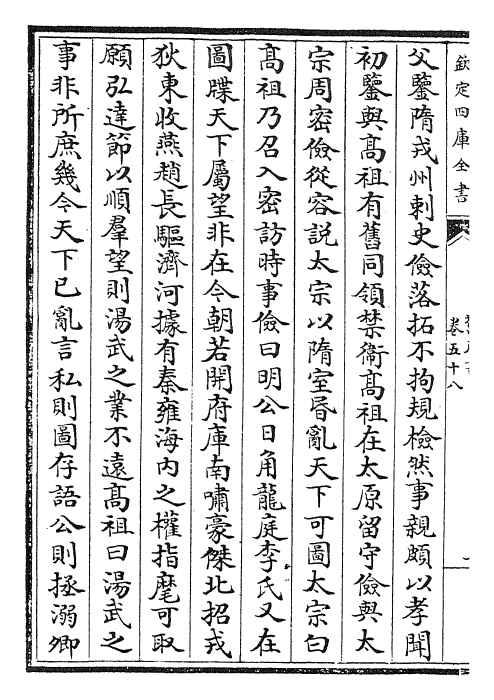 欽定四庫全書
卷五十八
父鑒隋戎州刺史儉落拓不拘規檢然事親頗以孝聞
初鑒與髙祖有舊同領禁衛髙祖在太原留守儉與太
宗周密儉從容説太宗以隋室昬亂天下可圖太宗白
髙祖乃召入密訪時事儉曰明公日角龍庭李氏又在
圖牒天下屬望非在今朝若開府庫南嘯豪傑北招戎
狄東收燕趙長驅濟河據有秦雍海内之權指麾可取
願弘達節以順羣望則湯武之業不遠髙祖曰湯武之
事非所庶幾今天下已亂言私則圖存語公則拯溺卿